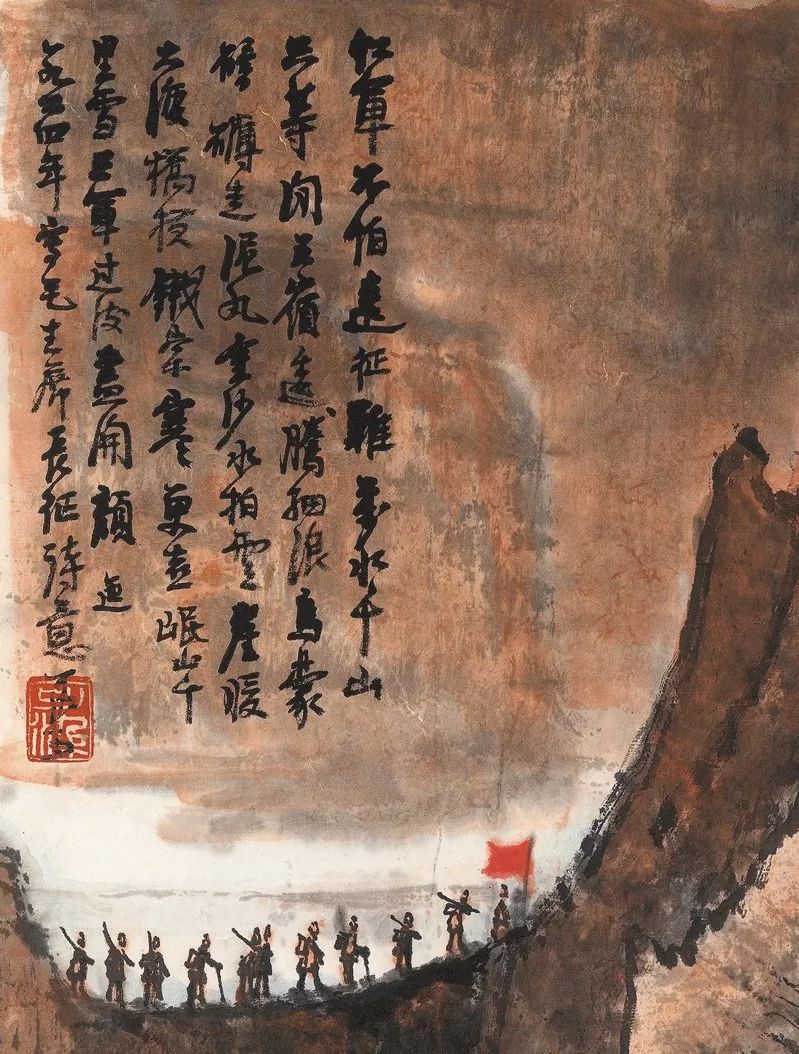 紅軍不怕遠征難萬水千山
只等閒五嶺逶騰細浪烏蒙
磅礴走泥丸金沙水拍雲崖暖
大渡橋橫鐵索寒更喜岷山千
里雪三軍过後盡開顏 迤
四年寫毛主席長征詩意